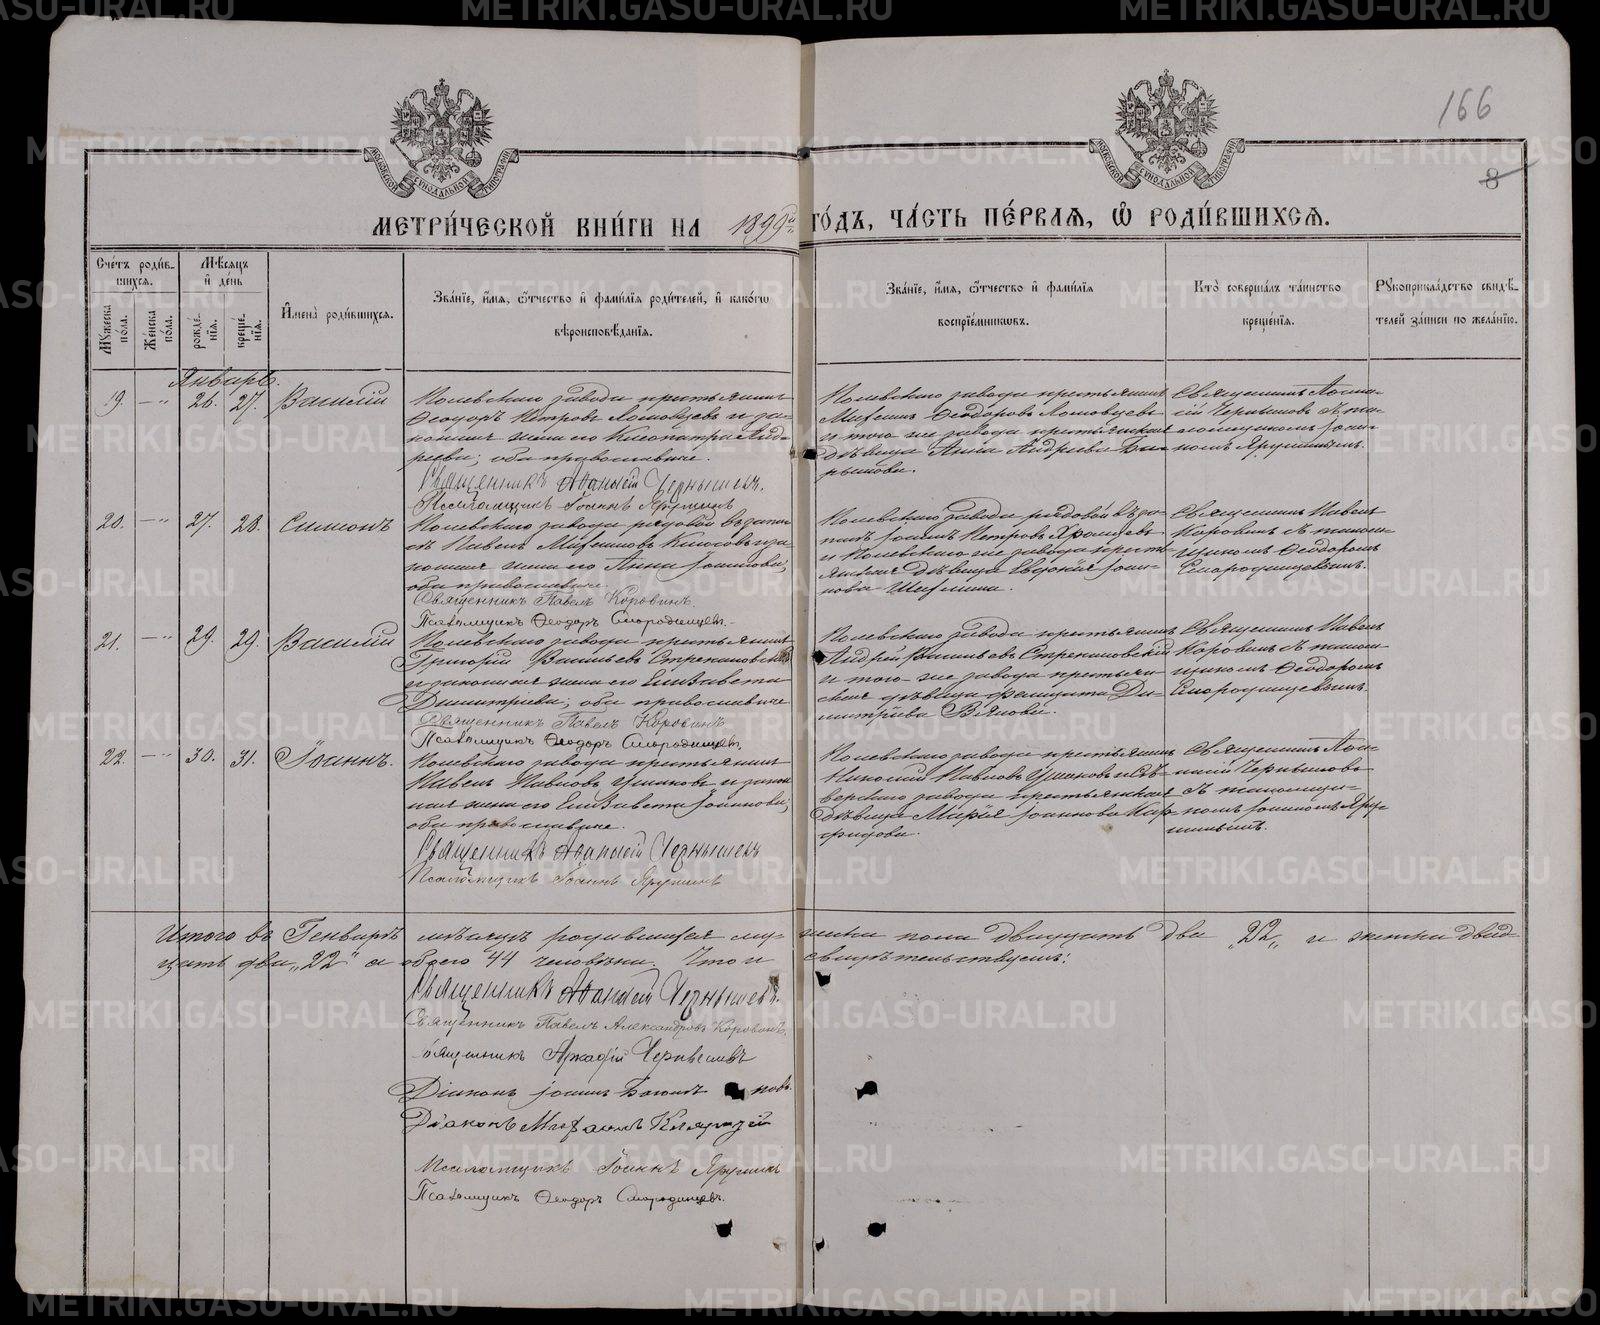 166
8
МОСКОВСКОЙ СѴНОДАЛЬНОЙ ТИПОГРАФІИ
МОСКОВСКОЙ СѴНОДАЛЬНОЙ ТИПОГРАФІИ
МЕТРИ́ЧЕСКОЙ КНИ́ГИ НА 1899й ГО́ДЪ, ЧА́СТЬ ПЕ́РВАѦ, Ѽ РОДИ́ВШИХСѦ.
Сче́тъ роди́в-
шихсѧ.
Мѣ́сѧцъ
и҆ де́нь
Мꙋ́жеска
по́ла.
Же́нска
по́ла.
рожде́-
нїѧ.
креще́-
нїѧ.
И҆мена̀ роди́вшихсѧ.
Зва́нїе, и҆́мѧ, ѻ҆́тчество и҆ фами́лїѧ роди́телей, и҆ како́гѡ
вѣроисповѣ́данїѧ.
Зва́нїе, и҆́мѧ, ѻ҆́тчество и҆ фами́лїѧ
воспрїе́мникѡвъ.
Кто̀ соверша́лъ та́инство
креще́нїѧ.
Рꙋкоприкла́дство свидѣ́-
телей за́писи по жела́нїю.
Январь.
19. — „ 26. 27. Василій
Полевскаго завода крестьянинъ
Ѳеодоръ Петровъ Ломовцевъ и за-
конная жена его Клеопатра Анд-
реева; оба православные.
Священникъ Аѳанасій Чернышевъ.
Псаломщикъ Іоаннъ Ярушинъ
Полевскаго завода крестьянинъ
Михаилъ Ѳеодоровъ Ломовцевъ
и того же завода крестьянская
дѣвица Анна Андреева Ба-
Священникъ Аѳана-
сій Чернышевъ съ пса-
ломщикомъ Іоан-
номъ Ярушинымъ.
20. — „ 27. 28. Симеонъ
Полевскаго завода рядовой въ запа-
сѣ Павелъ Михаиловъ
конная жена его Анна Іоаннова;
оба православные.
Священникъ Павелъ Коровинъ.
Псаломщикъ Ѳеодоръ Смородинцевъ.
Полевскаго завода рядовой въ за-
пасѣ Іоаннъ Петровъ Храмцевъ
и Полевскаго же завода кресть-
янская дѣвица Евдокія Іоан-
нова
Священникъ Павелъ
Коровинъ съ псалом-
щикомъ Ѳеодоромъ
Смородинцевымъ.
21. — „ 29. 29. Василій
Полевскаго завода крестьянинъ
Григорій Васильевъ
и законная жена его Елизавета
Димитріева; оба православные
Священникъ Павелъ Коровинъ
Псаломщикъ Ѳеодоръ Смородинцевъ.
Полевскаго завода крестьянинъ
Андрей Васильевъ
и того же завода крестьян-
ская дѣвица Фелицата Ди-
митріева Вялова.
Священникъ Павелъ
Коровинъ съ псалом-
щикомъ Ѳеодоромъ
Смородинцевымъ.
22. — „ 30. 31. Іоаннъ.
Полевскаго завода крестьянинъ
Павелъ Павловъ Ушаковъ и закон-
ная жена его Елизавета Іоаннова;
оба православные.
Священникъ Аѳанасій Чернышевъ
Псаломщикъ Іоаннъ Ярушинъ
Полевскаго завода крестьянинъ
Николай Павловъ Ушаковъ и Сѣ-
верскаго завода крестьянская
дѣвица Марія Іоаннова
Священникъ Аѳа-
насій Чернышевъ
съ псаломщи-
комъ Іоанномъ Яру-
шинымъ.
Итого въ Генварѣ мѣсяцѣ родившихся мужска пола двадцать два „22„ и женска двад-
цать два „22„ а обоего 44 человѣка. Что и свидѣтельствуемъ:
Священникъ Аѳанасій Чернышевъ.
Священникъ Павелъ Александровъ Коровинъ.
Священникъ Аркадій Чернышевъ
Діаконъ Іоаннъ
Діаконъ
Псаломщикъ Іоаннъ Ярушинъ
Псаломщикъ Ѳеодоръ Смородинцевъ.
METRIKI.GASO-URAL.RU